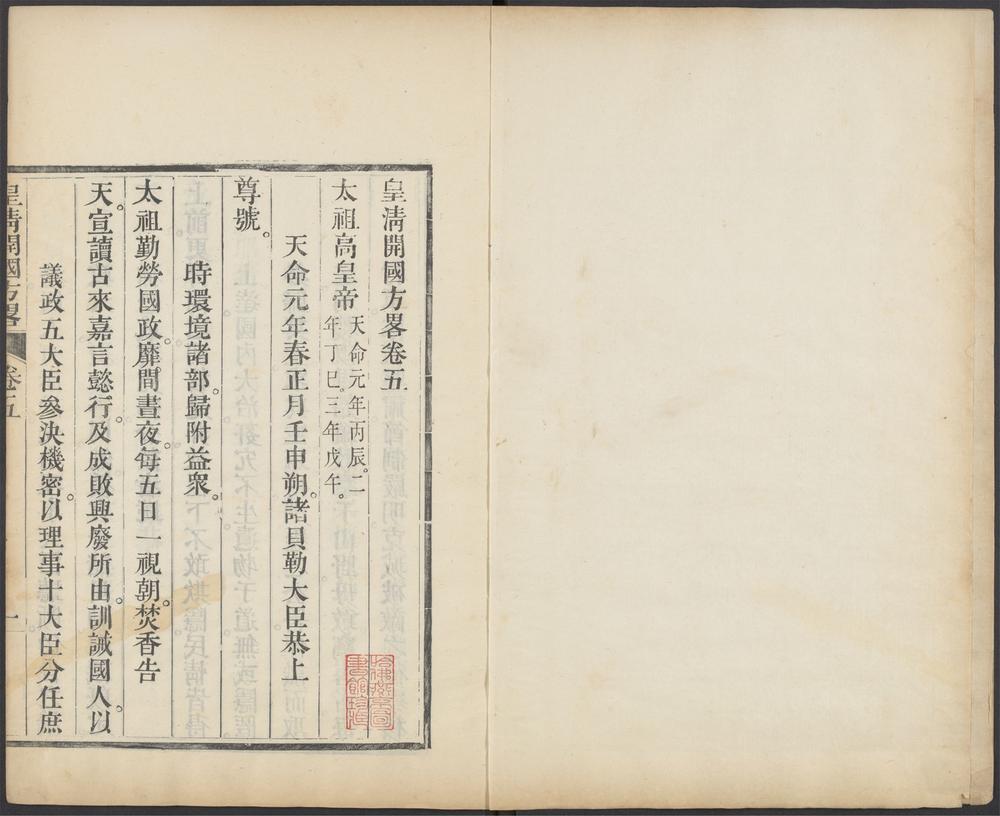 皇清開國方畧卷五
太祖高皇帝天命元年丙辰。二年丁巳。三年戊午。
天命元年春正月壬申朔。諸貝勒大臣恭上
尊號。
時環境諸部。歸附益衆。
太祖勤勞國政。靡間晝夜。每五日一視朝。焚香告
天。宣讀古來嘉言懿行。及成敗興廢所由。訓誡國人。以
議政五大臣參決機密。以理事十大臣分任庶
皇清開國方畧 卷五 一